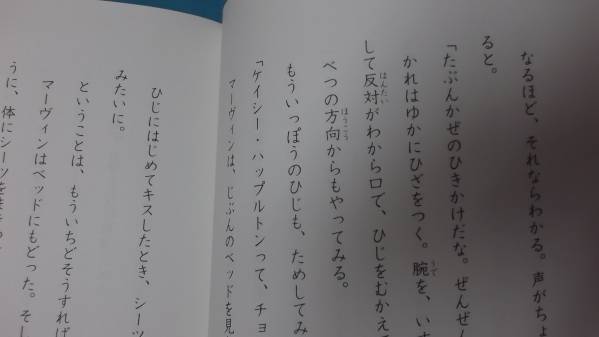 なるほど、それならわかる。声がちょ
ると。
「たぶんかぜのひきかけだな。ぜんぜん
かれはゆかにひざをつく。腕を、いす
して反対がわから口で、ひじをむかえて
べつの方向からもやってみる。
もういっぽうのひじも、ためしてみ
「ケイシー・ハップルトンって、チョ
マーヴィンは、じぶんのベッドを見
ひじにはじめてキスしたとき、シーツ
みたいに。
ということは、もういちどそうすれば
マーヴィンはベッドにもどった。そし
うに、体にシーツを